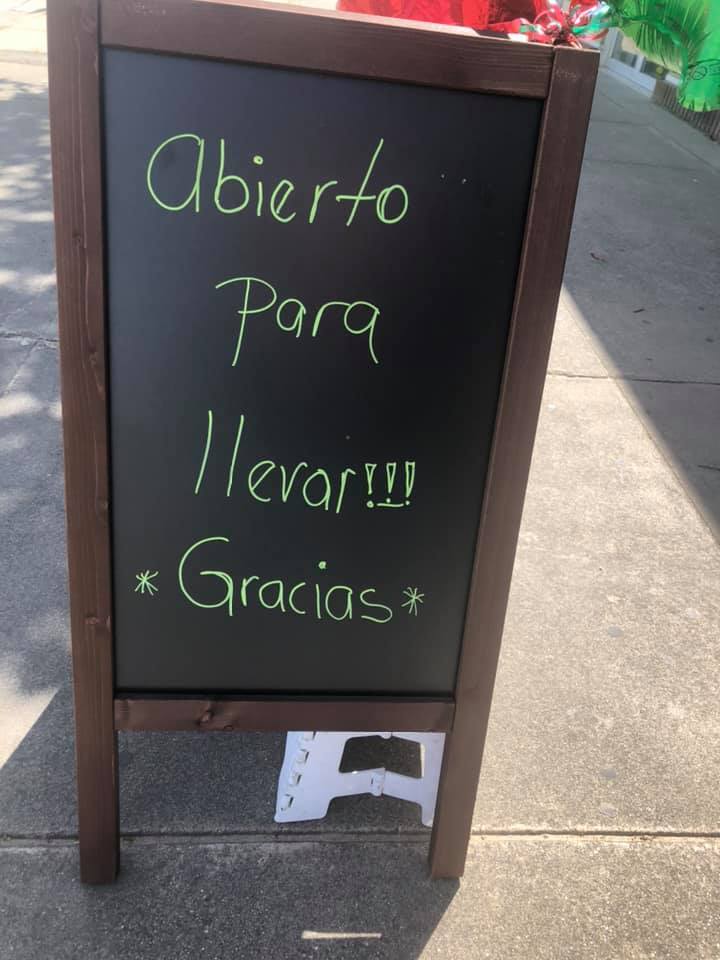 Abierto
Para
llevar!!!
*Gracias*